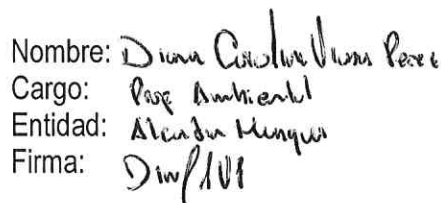 Nombre: Diana Carolina Vivas Perez
Cargo: Prog Ambiental
Entidad: Alcaldia
Firma: